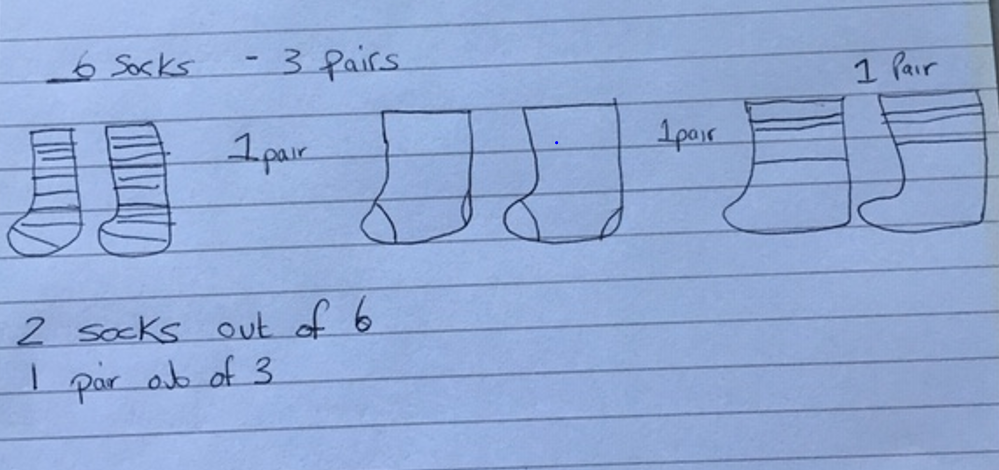 6 Socks - 3 pairs
1 Pair
1 pair
1 pair
2 socks out of 6
1 pair of 3